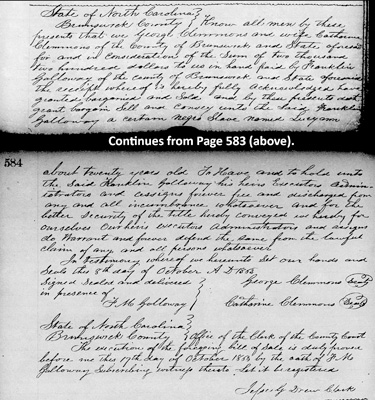 State of North Carolina
Brunswick County } Know all men by these
presents that we George Clemmons and wife Catharine
Clemmons of the County of Brunswick and State aforesaid
for and in consideration of the Sum of two thousand
two hundred dollars to us in hand paid by Franklin
Galloway of the county of Brunswick and State aforesaid
the receipt whereof is hereby fully acknowledged have
granted bargained and Sold and by these presents doth
grant bargain Sell and convey unto the Said Franklin
Galloway a certain negro Slave named
Continues from Page 583 (above).
584
about twenty years old To Have and to hold unto
the Said Franklin Galloway his heirs Executors Admin-
istrators and assigns forever free and discharged from
any and all incumbrance whatsoever and for the
better Security of the title hereby conveyed we hereby for
ourselves Our heirs executors Administrators and assigns
do Warrant and forever defend the Same from the lawful
claim of any and all persons whatsoever
In testimony whereof we hereunto Set our hands and
Seals the 8th day of October A D
Signed Sealed and delivered } George Clemmons (Seal)
in presence of
F. M. Galloway } Catharine Clemmons (Seal)
State of North Carolina
Brunswick County } Office of the Clerk of the County Court
The execution of the foregoing bill of Sale is duly proven
before me this 17th day of October by the oath of F. M.
Galloway Subscribing witness thereto Let it be registered
Clerk